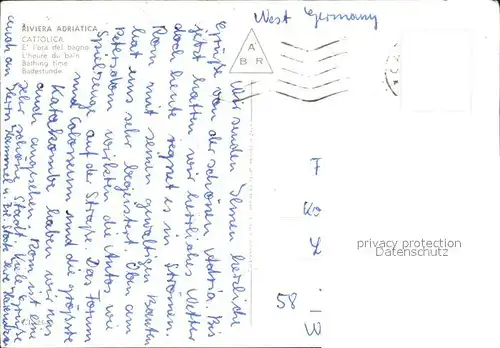 West Germany
RIVIERA ADRIATICA
CATTOLICA
E' l'ora del bagno
L'heure du bain
Bathing time
Badestunde
A
B R
Wir senden Ihnen herzliche
Grüße von der schönen Adria. Bis
jetzt hatten wir herrliches Wetter
doch heute regnet es in Strömen.
Rom mit seinen gewaltigen Bauten
hat uns sehr begeistert. Oben am
Petersdom wirkten die Autos wie
Spielzeuge auf der Straße. Das Forum
und Colosseum und die größte
Katakombe haben wir uns
auch angesehen. Rom ist eine
sehr schöne Stadt. Viele Grüße
auch an Herrn Hammel u. Frl.
F
Ko
L
58
W
privacy protection
Datenschutz